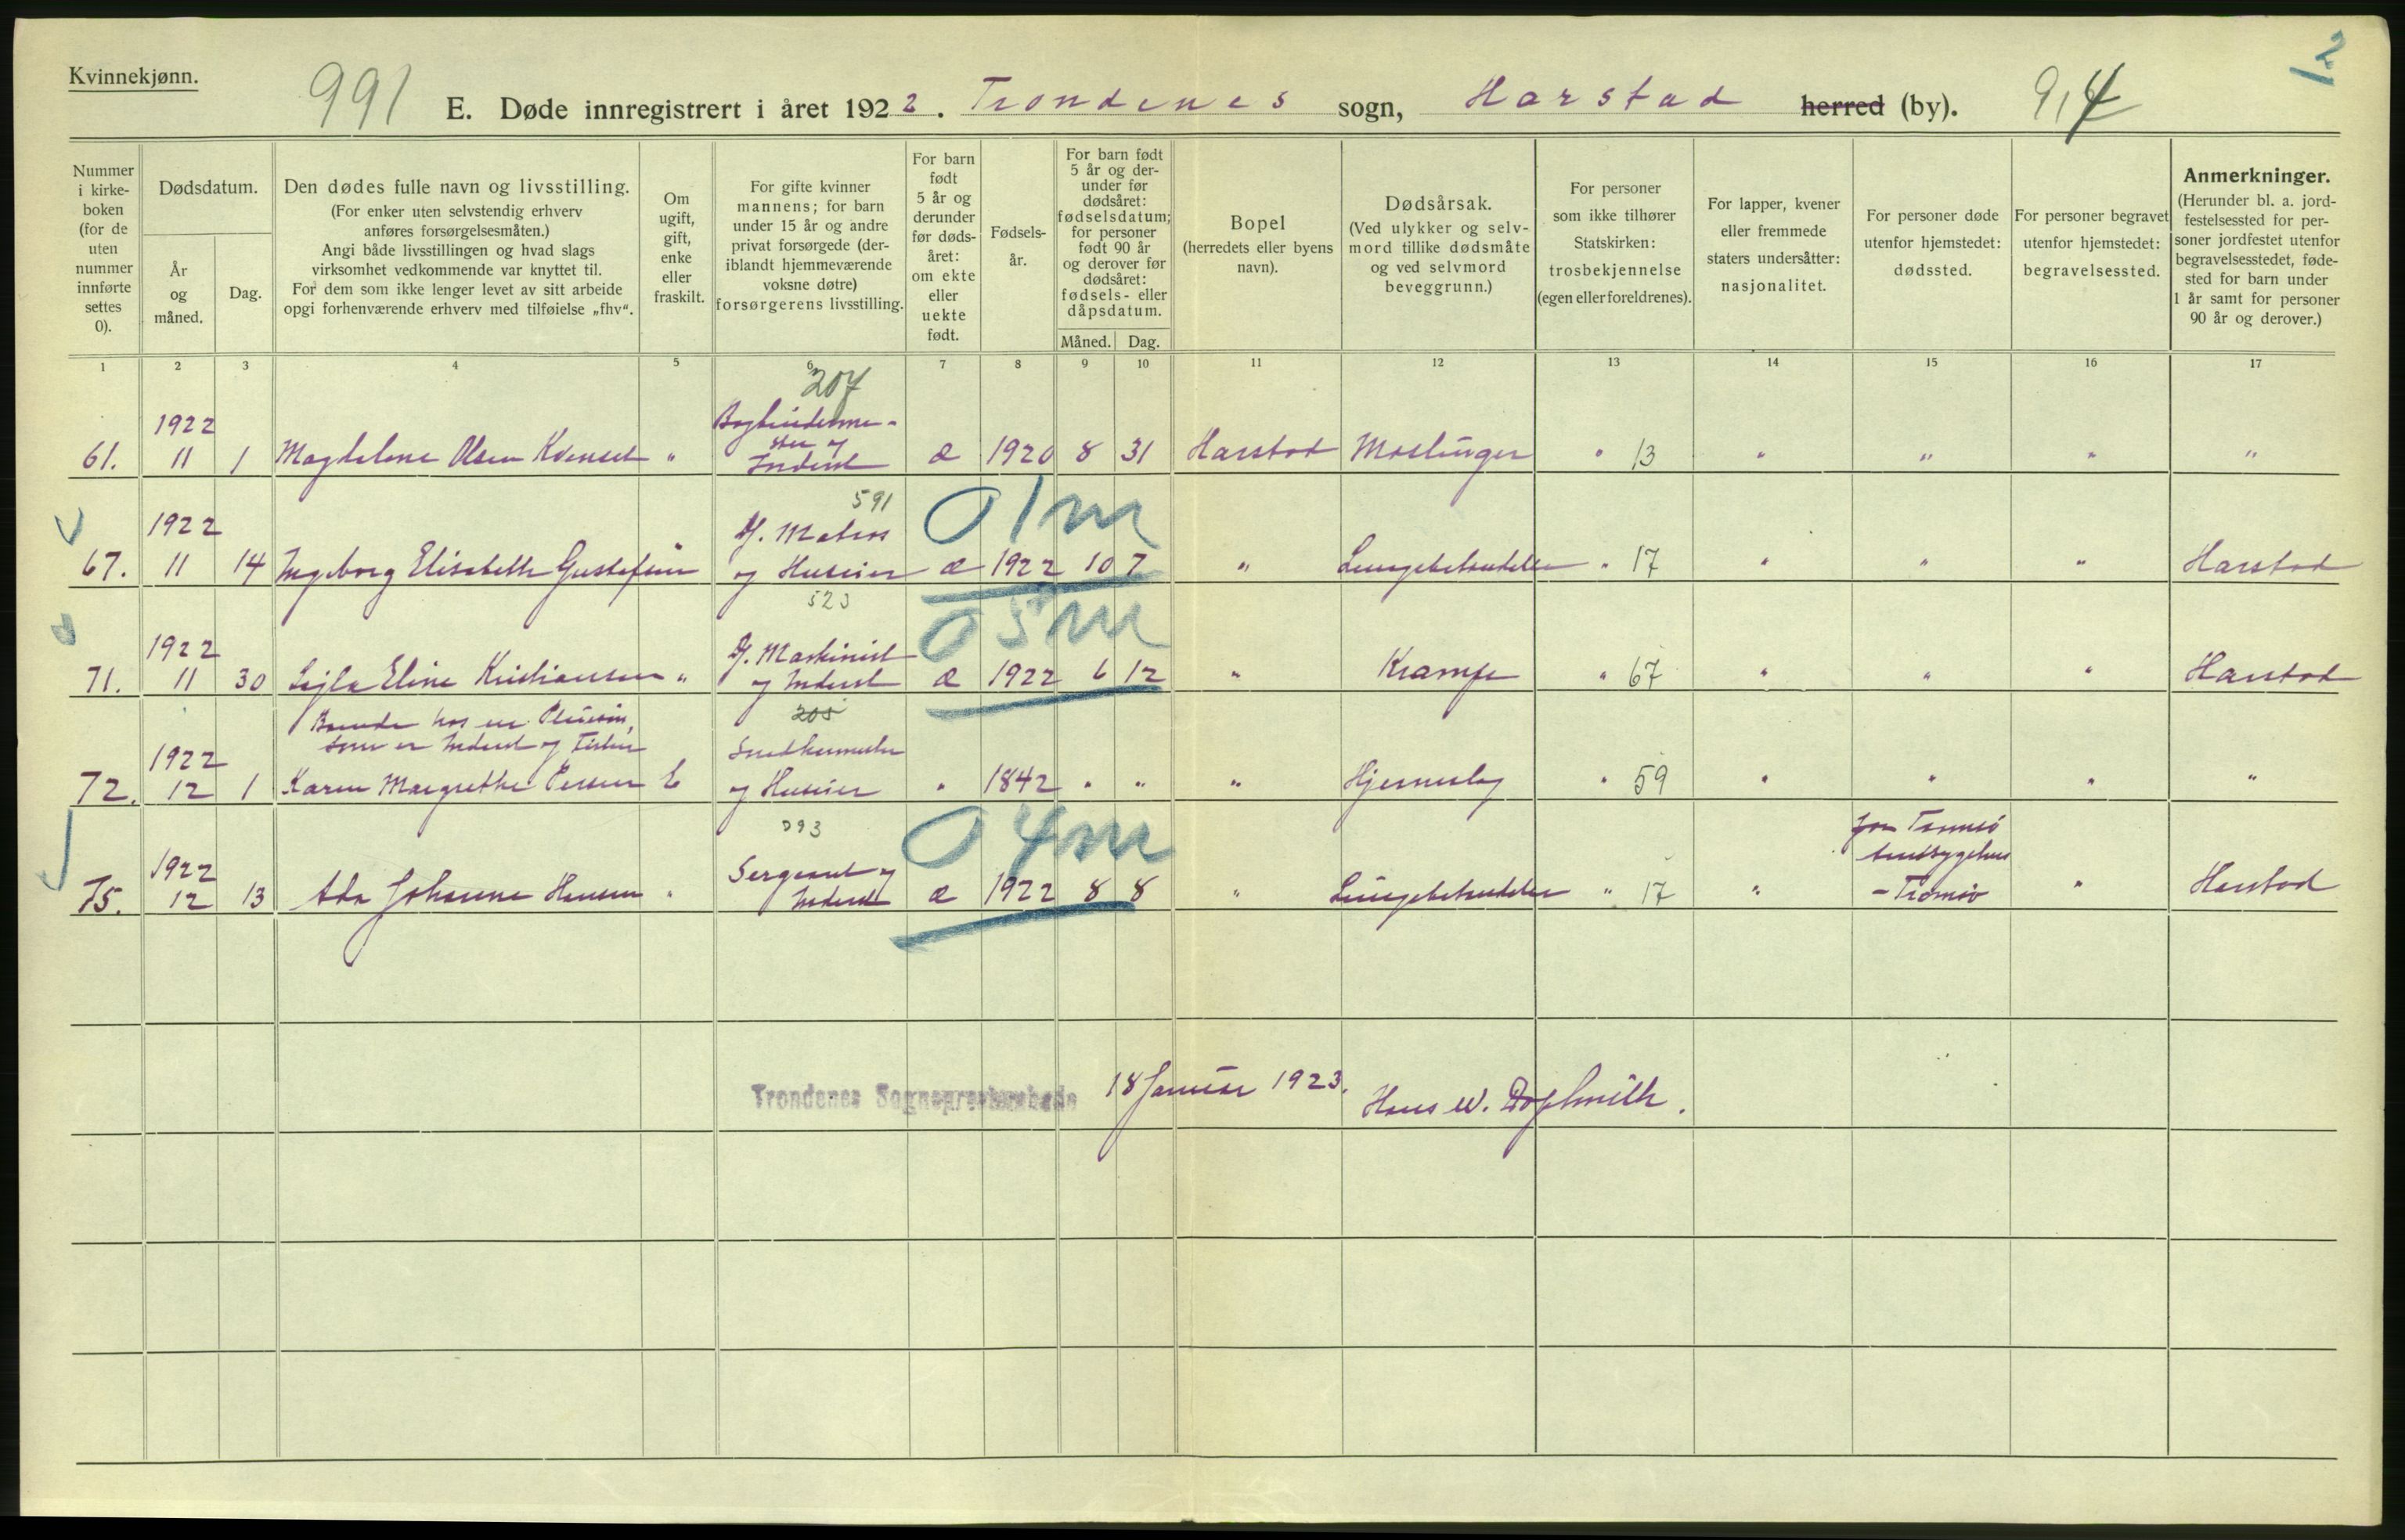 Kvinnekjønn.
991
2
E. Døde innregistrert i året 1922. Trondenes sogn, Harstad herred (by). 914
Nummer i kirke-boken (for de uten nummer innførte settes 0).
Dødsdatum.
År og måned.
Dag.
Den dødes fulle navn og livsstilling.
(For enker uten selvstendig erhverv anføres forsørgelsesmåten.)
Angi både livsstillingen og hvad slags virksomhet vedkommende var knyttet til.
For dem som ikke lenger levet av sitt arbeide opgi forhenværende erhverv med tilføielse „fhv“.
Om ugift, gift, enke eller fraskilt.
For gifte kvinner mannens; for barn under 15 år og andre privat forsørgede (deriblandt hjemmeværende voksne døtre) forsørgerens livsstilling.
For barn født 5 år og derunder før dødsåret: om ekte eller uekte født.
Fødsels-år.
For barn født 5 år og derunder før dødsåret: fødselsdatum; for personer født 90 år og derover før dødsåret: fødsels- eller dåpsdatum.
Måned. Dag.
Bopel (herredets eller byens navn).
Dødsårsak. (Ved ulykker og selvmord tillike dødsmåte og ved selvmord beveggrunn.)
For personer som ikke tilhører Statskirken: trosbekjennelse (egen eller foreldrenes).
For lapper, kvener eller fremmede staters undersåtter: nasjonalitet.
For personer døde utenfor hjemstedet: dødssted.
For personer begravet utenfor hjemstedet: begravelsessted.
Anmerkninger. (Herunder bl. a. jordfestelsessted for personer jordfestet utenfor begravelsesstedet, fødested for barn under 1 år samt for personer 90 år og derover.)
1 2 3 4 5 6 7 8 9 10 11 12 13 14 15 16 17
207
1922 Bogbinderme-
ster og
61. 11 1 Magdelene Olsen Kvensel " Inderst æ 1920 8 31 Harstad Meslinger " 13 " " " "
591 01m
1922 Matros
67. 11 14 Ingeborg Elisabeth Gustafson og Huseier æ 1922 10 7 " Lungebetændelse " 17 " " " Harstad
523 05m
1922 Maskinist
71. 11 30 Lejla Eline Kristiansen " og Inderst æ 1922 6 12 " Krampe " 67 " " " Harstad
205
som er Inderst og Fisker
1922 Snedkermester
72. 12 1 Karen Margrethe Persen E og Huseier " 1842 " " " Hjerneslag " 59 " " " "
393 04m
Tromsø
1922 Sergeant og
75. 12 13 Ada Johanne Hansen " Inderst æ 1922 8 8 " Lungebetændelse " 17 " - Tromsø " Harstad
Trondenes Sogneprestembede 18 Januar 1923. Hans W.